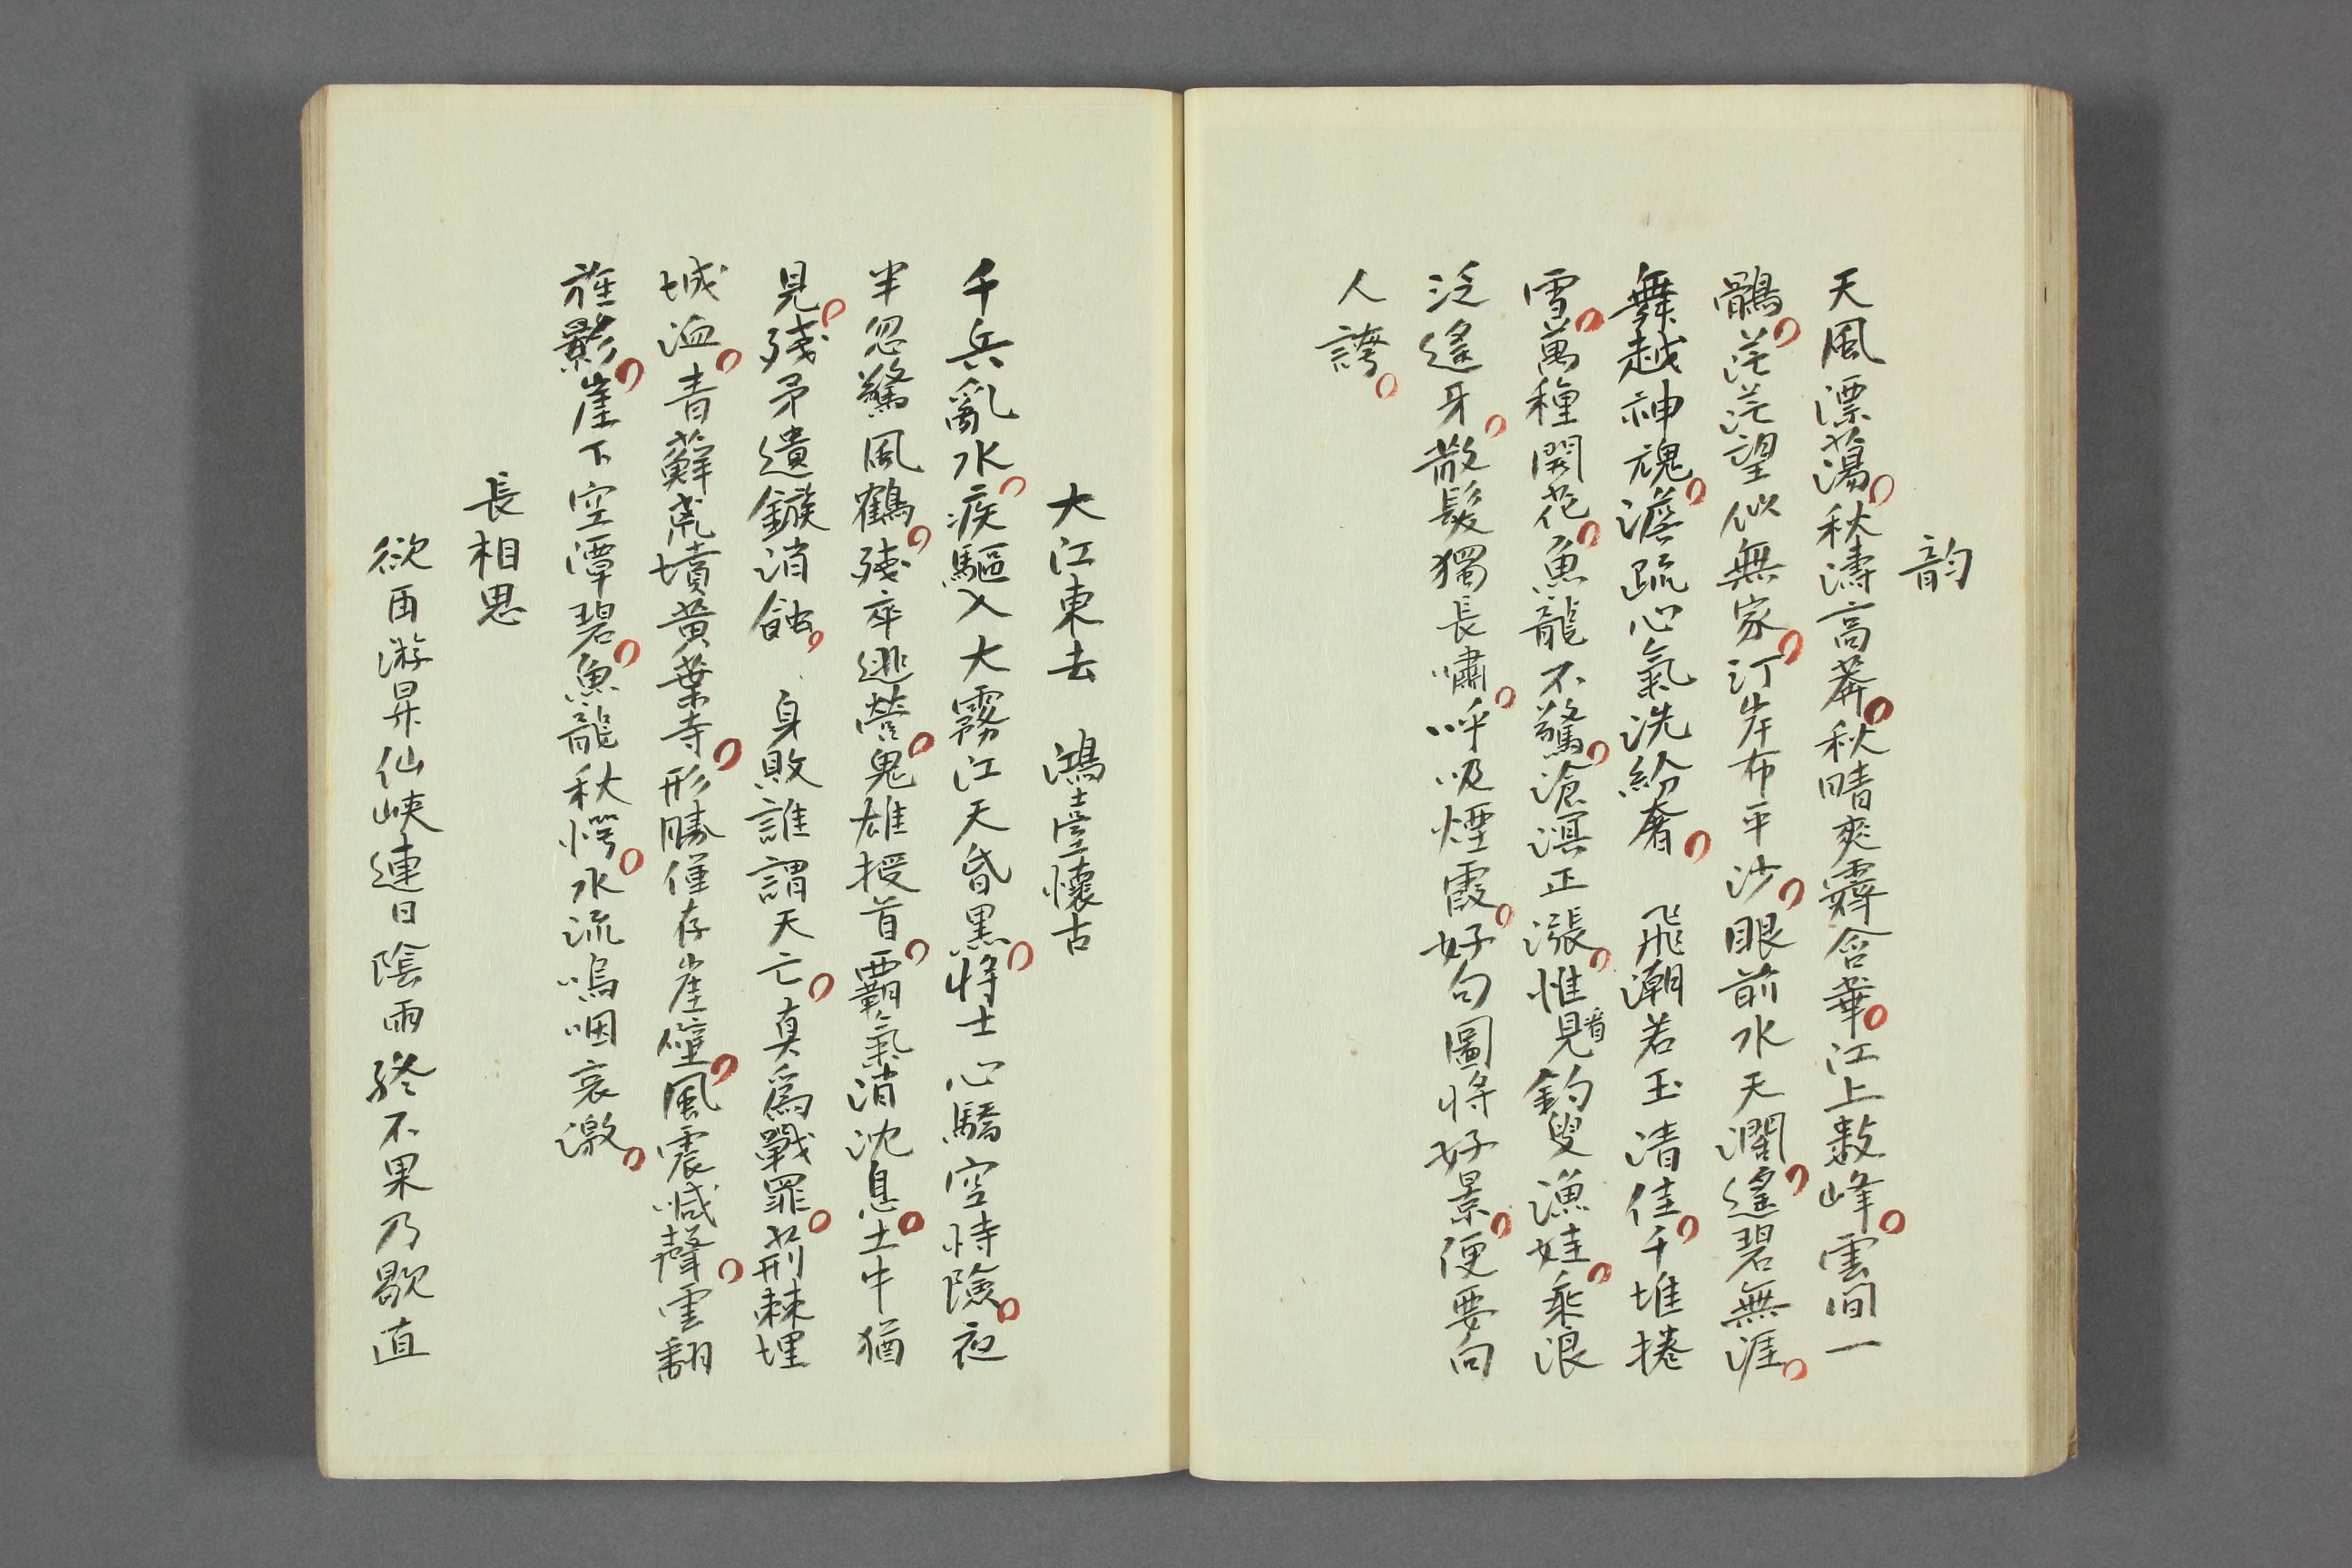 韵
天風漂蕩秋濤高葬秋晴爽霽含華江上數峰雲間一
鶻茫茫望似無家汀岸布平沙眼前水天濶遙碧無涯
舞越神魂澹疏心氣洗紛奢　飛潮若玉清佳千堆捲
雪萬種開花魚龍不驚滄溟正漲惟見看釣叟漁娃乘浪
泛遙牙散髮獨長嘯呼吸煙霞好句圖將好景便要向
人誇
大江東去　鴻臺懷古
千兵亂水疾驅入大霧江天昏黑將士心驕空恃險夜
半忽驚風鶴殘卒逃營鬼雄授首覇氣消沈息土中猶
見殘矛遺鏃消蝕　身敗誰謂天亡真爲戰罪荊棘埋
城洫青蘚荒墳黃葉寺形勝僅存崖壁風震喊聲雲翻
旌影崖下空潭碧魚龍秋愕水流嗚咽哀激
長相思
欲再游昇仙峽連日陰雨終不果乃歇直